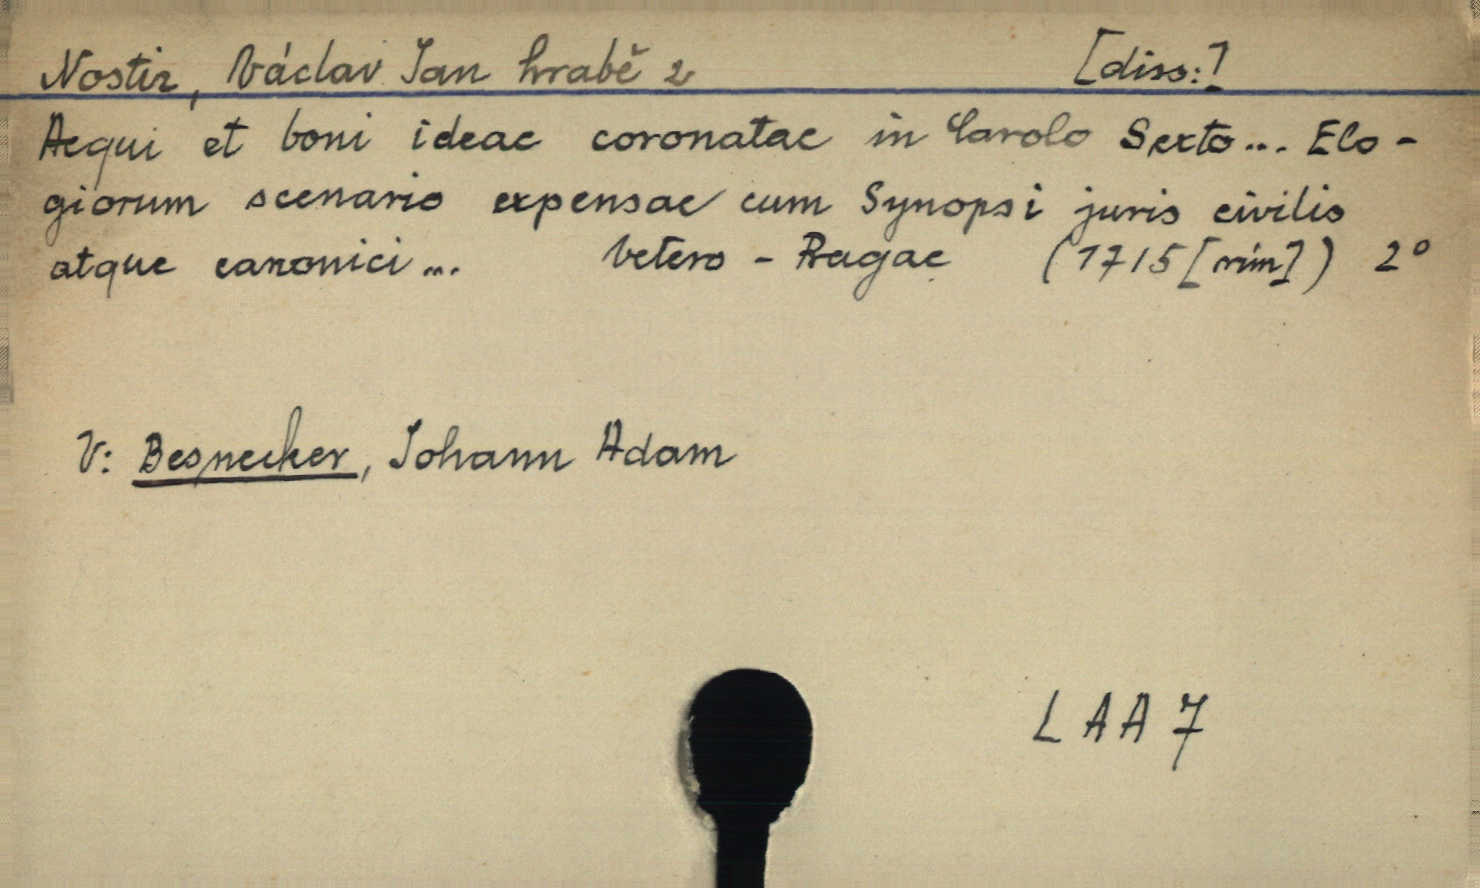 Nostiz, Václav Jan hrabě z [diss:]
Aequi et boni ideae coronatae in Carolo Sexto... Elo-
giorum scenario expensae cum Synopsi juris civilis
atque canonici... Vetero - Pragae (1715 [řím]) 2°
V: Besnecker, Johann Adam
LAA7